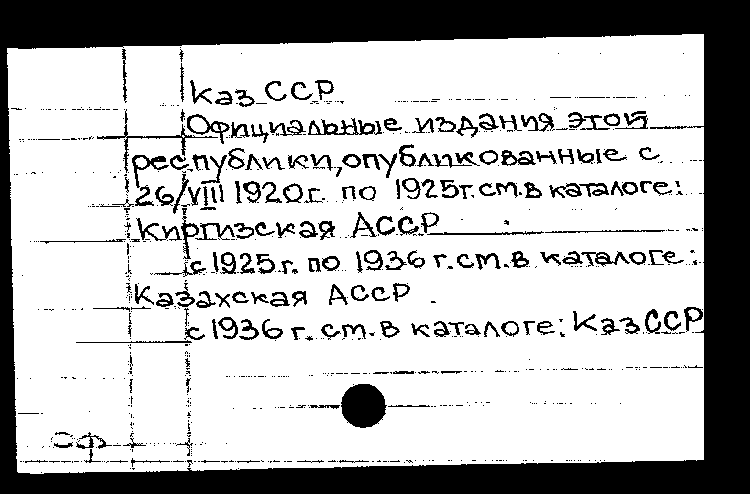 Каз ССР
Официальные издания этой
республики, опубликованные с
26/VIII 1920г. по 1925г. см. в каталоге:
Киргизская АССР
с 1925 г. по 1936 г. см. в каталоге:
Казахская АССР.
с 1936 г. см. в каталоге: Каз ССР
Оф